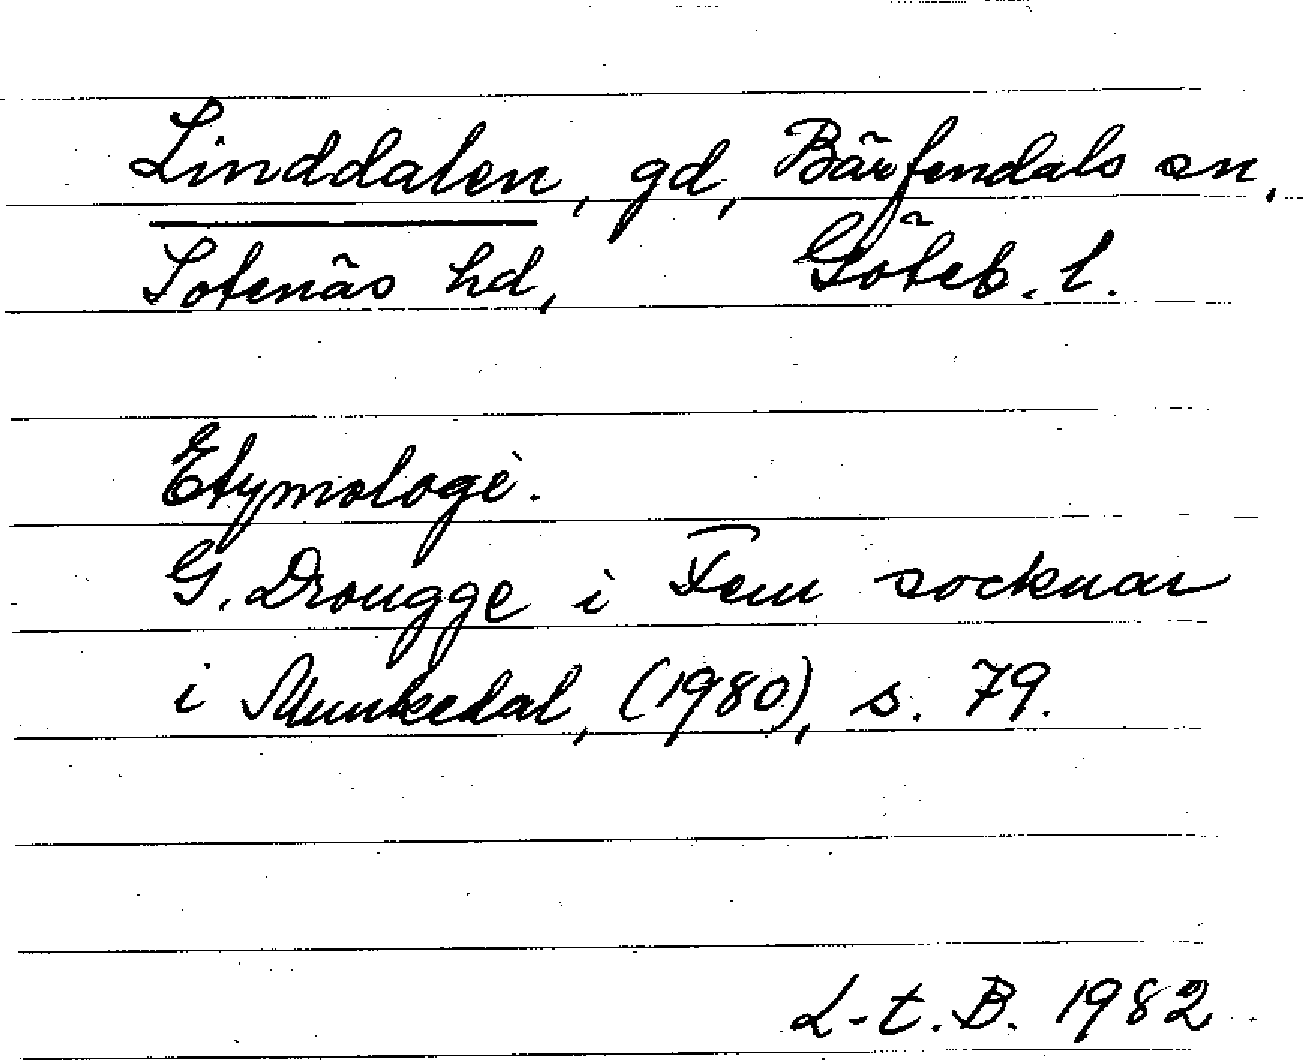 Linddalen, gd, Bärfendals sn,
Sotenäs hd, Göteb. l.
Etymologi.
G. Drougge i Fem socknar
i Munkedal, (1980), s. 79.
L-t. B. 1982